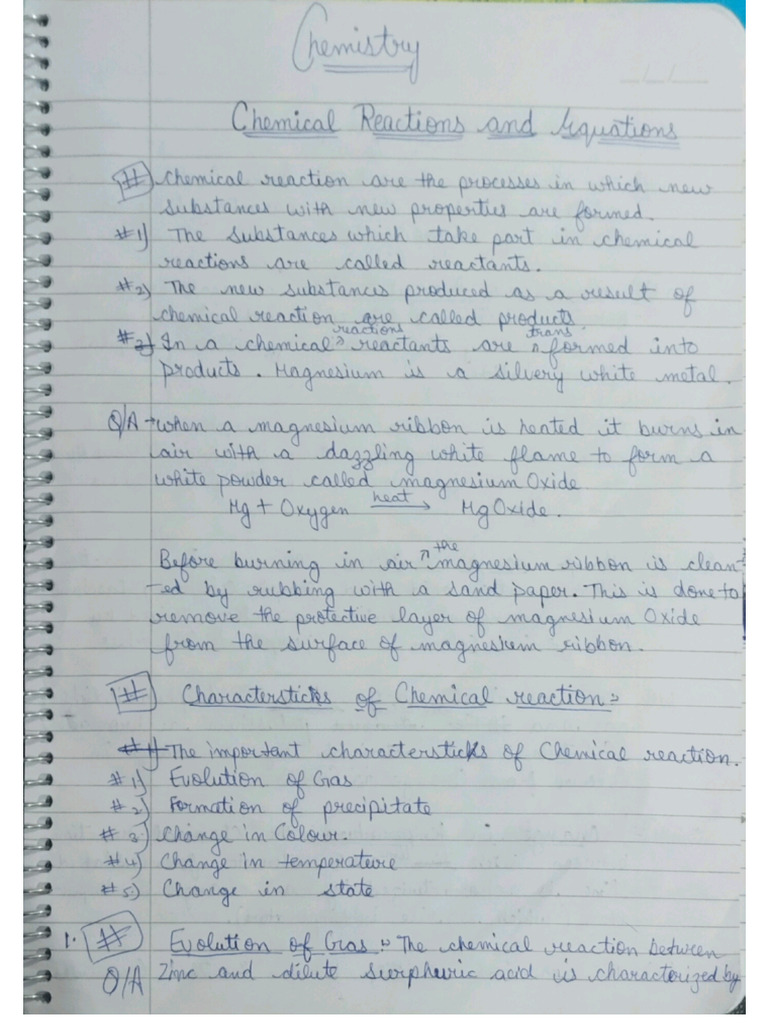 Chemistry
Chemical Reactions and Equations
# Chemical reaction are the processes in which new
substances with new properties are formed.
#1) The Substances which take part in chemical
reactions are called reactants.
#2) The new substances produced as a result of
chemical reaction are called products
reactions trans
#3) In a chemical reactants are formed into
products. Magnesium is a silvery white metal.
Q/A → when a magnesium ribbon is heated it burns in
air with a dazzling white flame to form a
white powder called magnesium Oxide
Mg + Oxygen heat → Mg Oxide.
the
Before burning in air magnesium ribbon is clean-
-ed by rubbing with a sand paper. This is done to
remove the protective layer of magnesium Oxide
from the surface of magnesium ribbon.
1# Charactersticks of Chemical reaction :-
#1) The important charactersticks of Chemical reaction.
#1) Evolution of Gas
#2) Formation of precipitate
#3) Change in Colour.
#4) Change in temperature
#5) Change in state
1. # Evolution of Gas :- The chemical reaction between
Q/A Zinc and dilute surpheric acid is characterized by